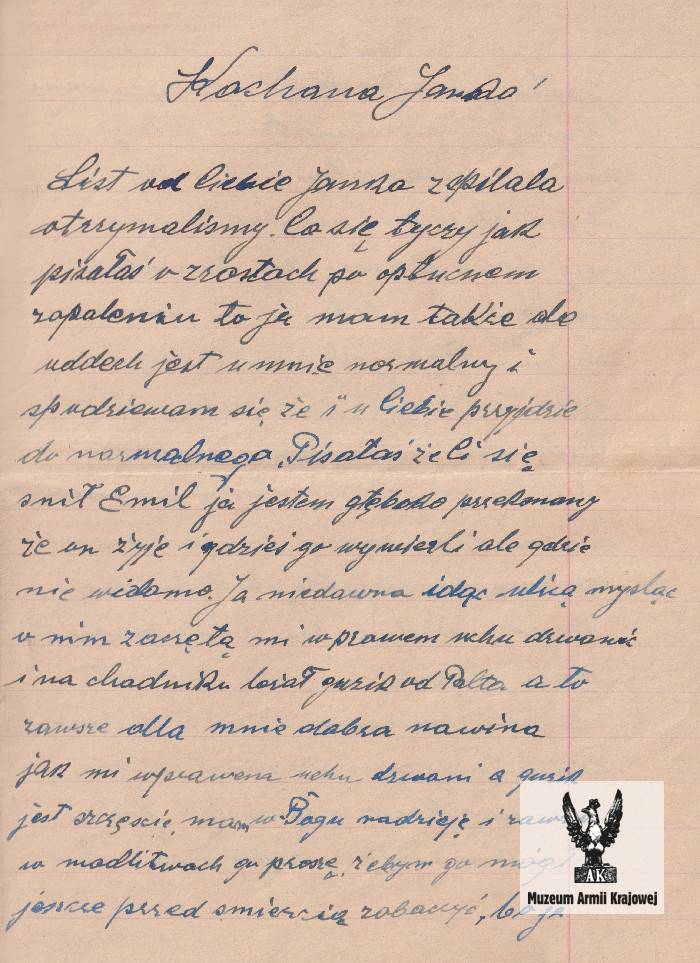 Kochana Janko
List od Ciebie Janka z Piła
otrzymalismy. Co się tyczy jak
pisałaś o zrostach po opłucnem
zapaleniu to ja mam także ale
oddech jest u mnie normalny i
spodziewam się że i u Ciebie przyjdzie
do normalnego. Pisałaś że Ci się
snił Emil ja jestem głęboko przekonany
że on żyje i gdzieś go wywiezli ale gdzie
nie widomo. Ja niedawno idąc ulicą mysląc
o nim zaczętą mi w prawem uchu dzwonić
i na chodniku leżał guzik od Palta a to
zawsze dla mnie dobra nowina
jak mi w prawem uchu dzwoni a guzik
jest szczęscie, mam w Bogu nadzieję i
w modlitwach go proszę, żebym go mógł
jeszcze przed smiercią zobaczyć, bo ja
AK
Muzeum Armii Krajowej